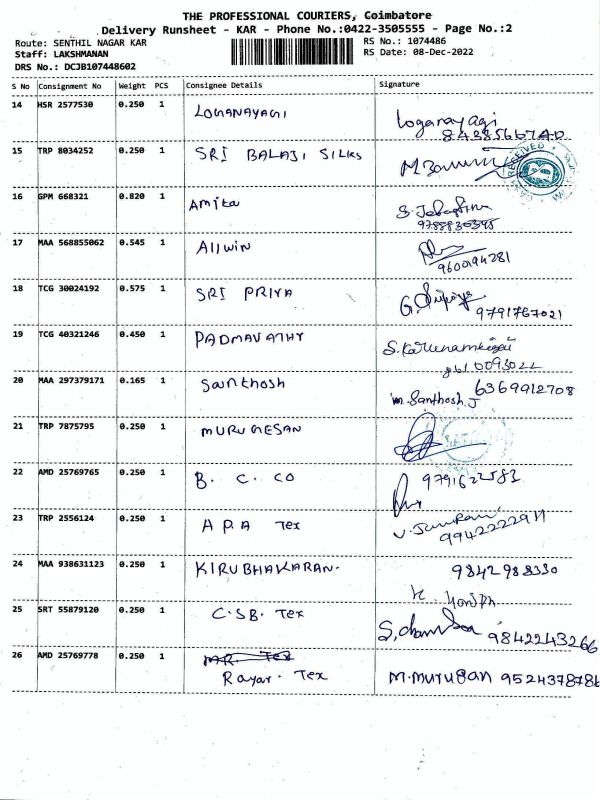 THE PROFESSIONAL COURIERS, Coimbatore
Delivery Runsheet - KAR - Phone No.:0422-3505555 - Page No.:2
Route: SENTHIL NAGAR KAR
RS No.: 1074486
Staff: LAKSHMANAN
RS Date: 08-Dec-2022
DRS No.: DCJB107448602
S No Consignment No Weight PCS Consignee Details Signature
14 HSR 2577530 0.250 1 LOGANAYAGI Loganayagi
15 TRP 8034252 0.250 1 SRI BALAJI SILKS
RECEIVED
16 GPM 668321 0.820 1 Amita
17 MAA 568855062 0.545 1 Allwin
9600194281
18 TCG 30024192 0.575 1 SRI PRIYA
9791767021
19 TCG 40321246 0.450 1 PADMAVATHY
20 MAA 297379171 0.165 1 Santhosh 6369912708
m. Santhosh.J
21 TRP 7875795 0.250 1 MURUGESAN
22 AMD 25769765 0.250 1 B. C. CO
23 TRP 2556124 0.250 1 APA Tex
24 MAA 938631123 0.250 1 KIRUBHAKARAN. 9842988330
25 SRT 55879120 0.250 1 C.SB. Tex
9842243266
26 AMD 25769778 0.250 1 MR. Tex
Rayar. Tex M.murugan 9524378786